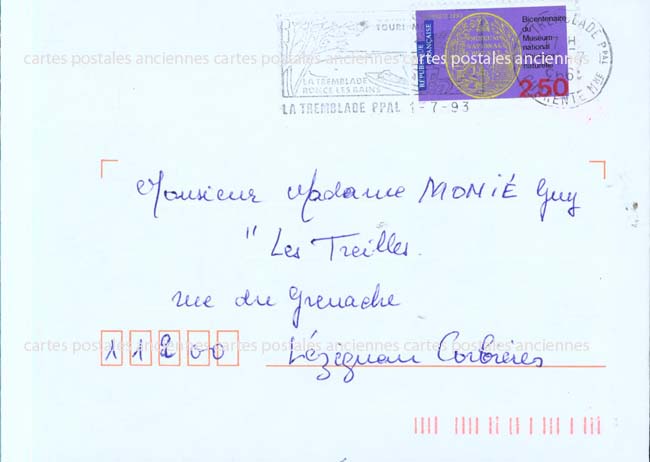 TOURI
LA TREMBLADE
RONCE LES BAINS
LA TREMBLADE PPAL 1-7-93
REPUBLIQUE FRANÇAISE
Bicentenaire
du
Museum
national
naturelle
2.50
TREMBLADE PPAL
H
cartes postales anciennes cartes postales anciennes cartes postales anciennes
Monsieur Madame MONIÉ Guy
" Les Treilles.
rue du Grenache
11200 Lézignan Corbières
cartes postales anciennes cartes postales anciennes cartes postales anciennes